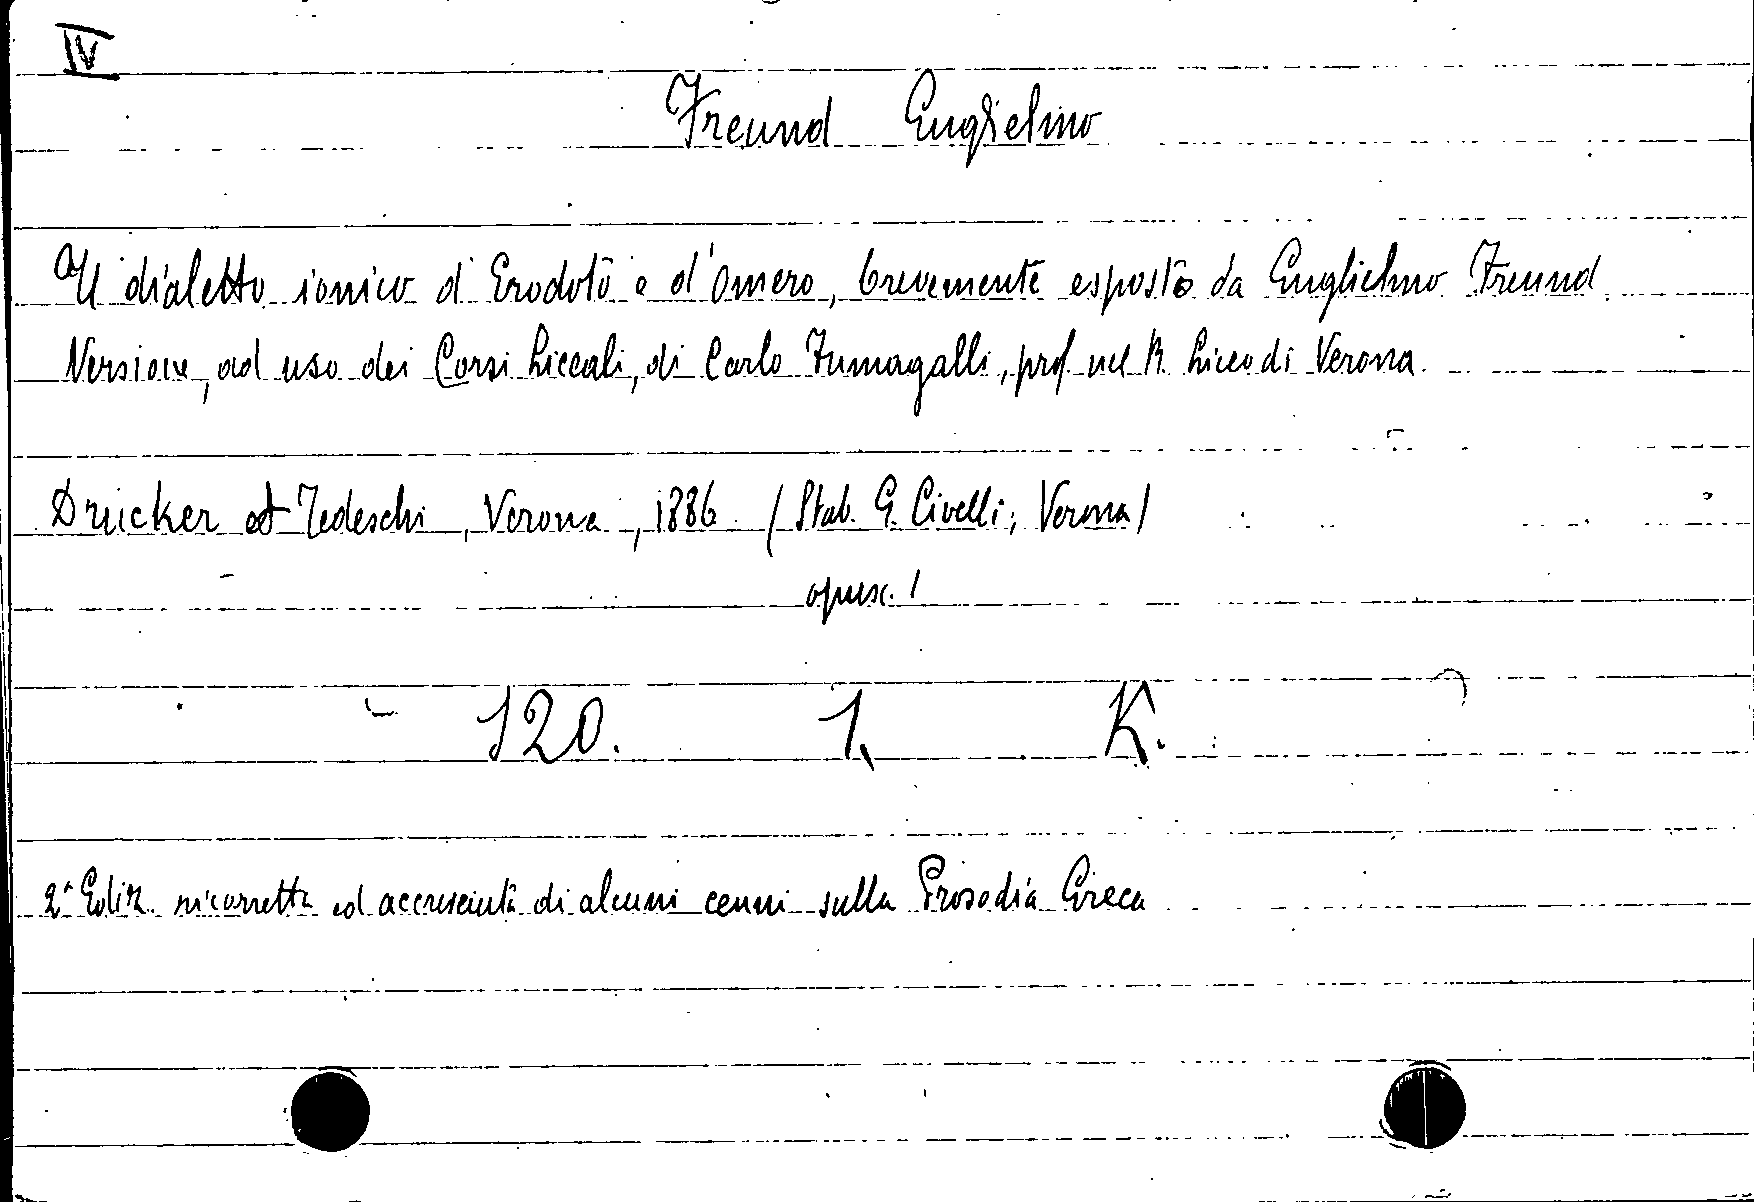 IV
Freund Guglielmo
Il dialetto ionico d'Erodoto e d'Omero, brevemente esposto da Guglielmo Freund
Versione, ad uso dei Corsi Liceali, di Carlo Fumagalli, prof. nel R. Liceo di Verona.
Drucker et Tedeschi, Verona, 1886 (Stab. G. Civelli; Verona)
opusc. 1
120. 1. K.
2ª Ediz. ricorretta ed accresciuta di alcuni cenni sulla Prosodia Greca